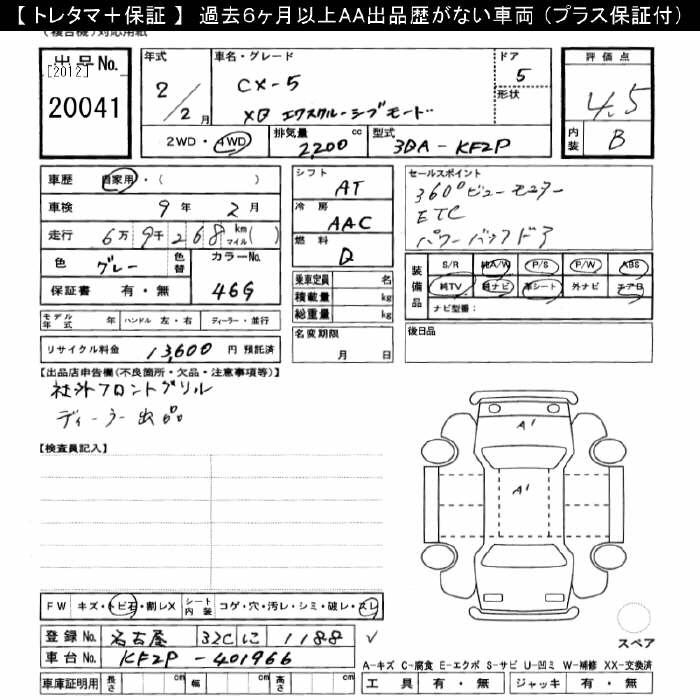 【トレタマ＋保証】 過去6ヶ月以上AA出品歴がない車両 (プラス保証付)
出品No. [2012] 20041
年式 2/2月
車名・グレード CX-5 XD エクスクルーシブモード
ドア 5
形状
評価点 4.5
内装 B
2WD・4WD
排気量 2,200 cc
型式 3DA-KF2P
車歴 自家用・( )
車検 9年 2月
走行 6万9千268 km マイル( )
色 グレー 色替 カラーNo. 46G
保証書 有・無
シフト AT
冷房 AAC
燃料 D
乗車定員 名
積載量 kg
総重量 kg
セールスポイント
360°ビューモニター
ETC
パワーバックドア
装備品 S/R 純A/W P/S P/W ABS
純TV 純ナビ 革シート 外ナビ エアB
ナビ型番:
モデル年式 年 ハンドル 左・右 ディーラー・並行
名変期限 月 日
後日品
リサイクル料金 13,600 円 預託済
【出品店申告欄(不良箇所・欠品・注意事項等)】
社外フロントグリル
ディーラー出品
【検査員記入】
A1
A1
FW キズ・トビ石・割レX シート内装 コゲ・穴・汚レ・シミ・破レ・スレ
登録No. 名古屋 32C に 1188
車台No. KF2P-401966
スペア
A-キズ C-腐食 E-エクボ S-サビ U-凹ミ W-補修 XX-交換済
車庫証明用 長さ cm 幅 cm 高さ cm
工具 有・無 ジャッキ 有・無